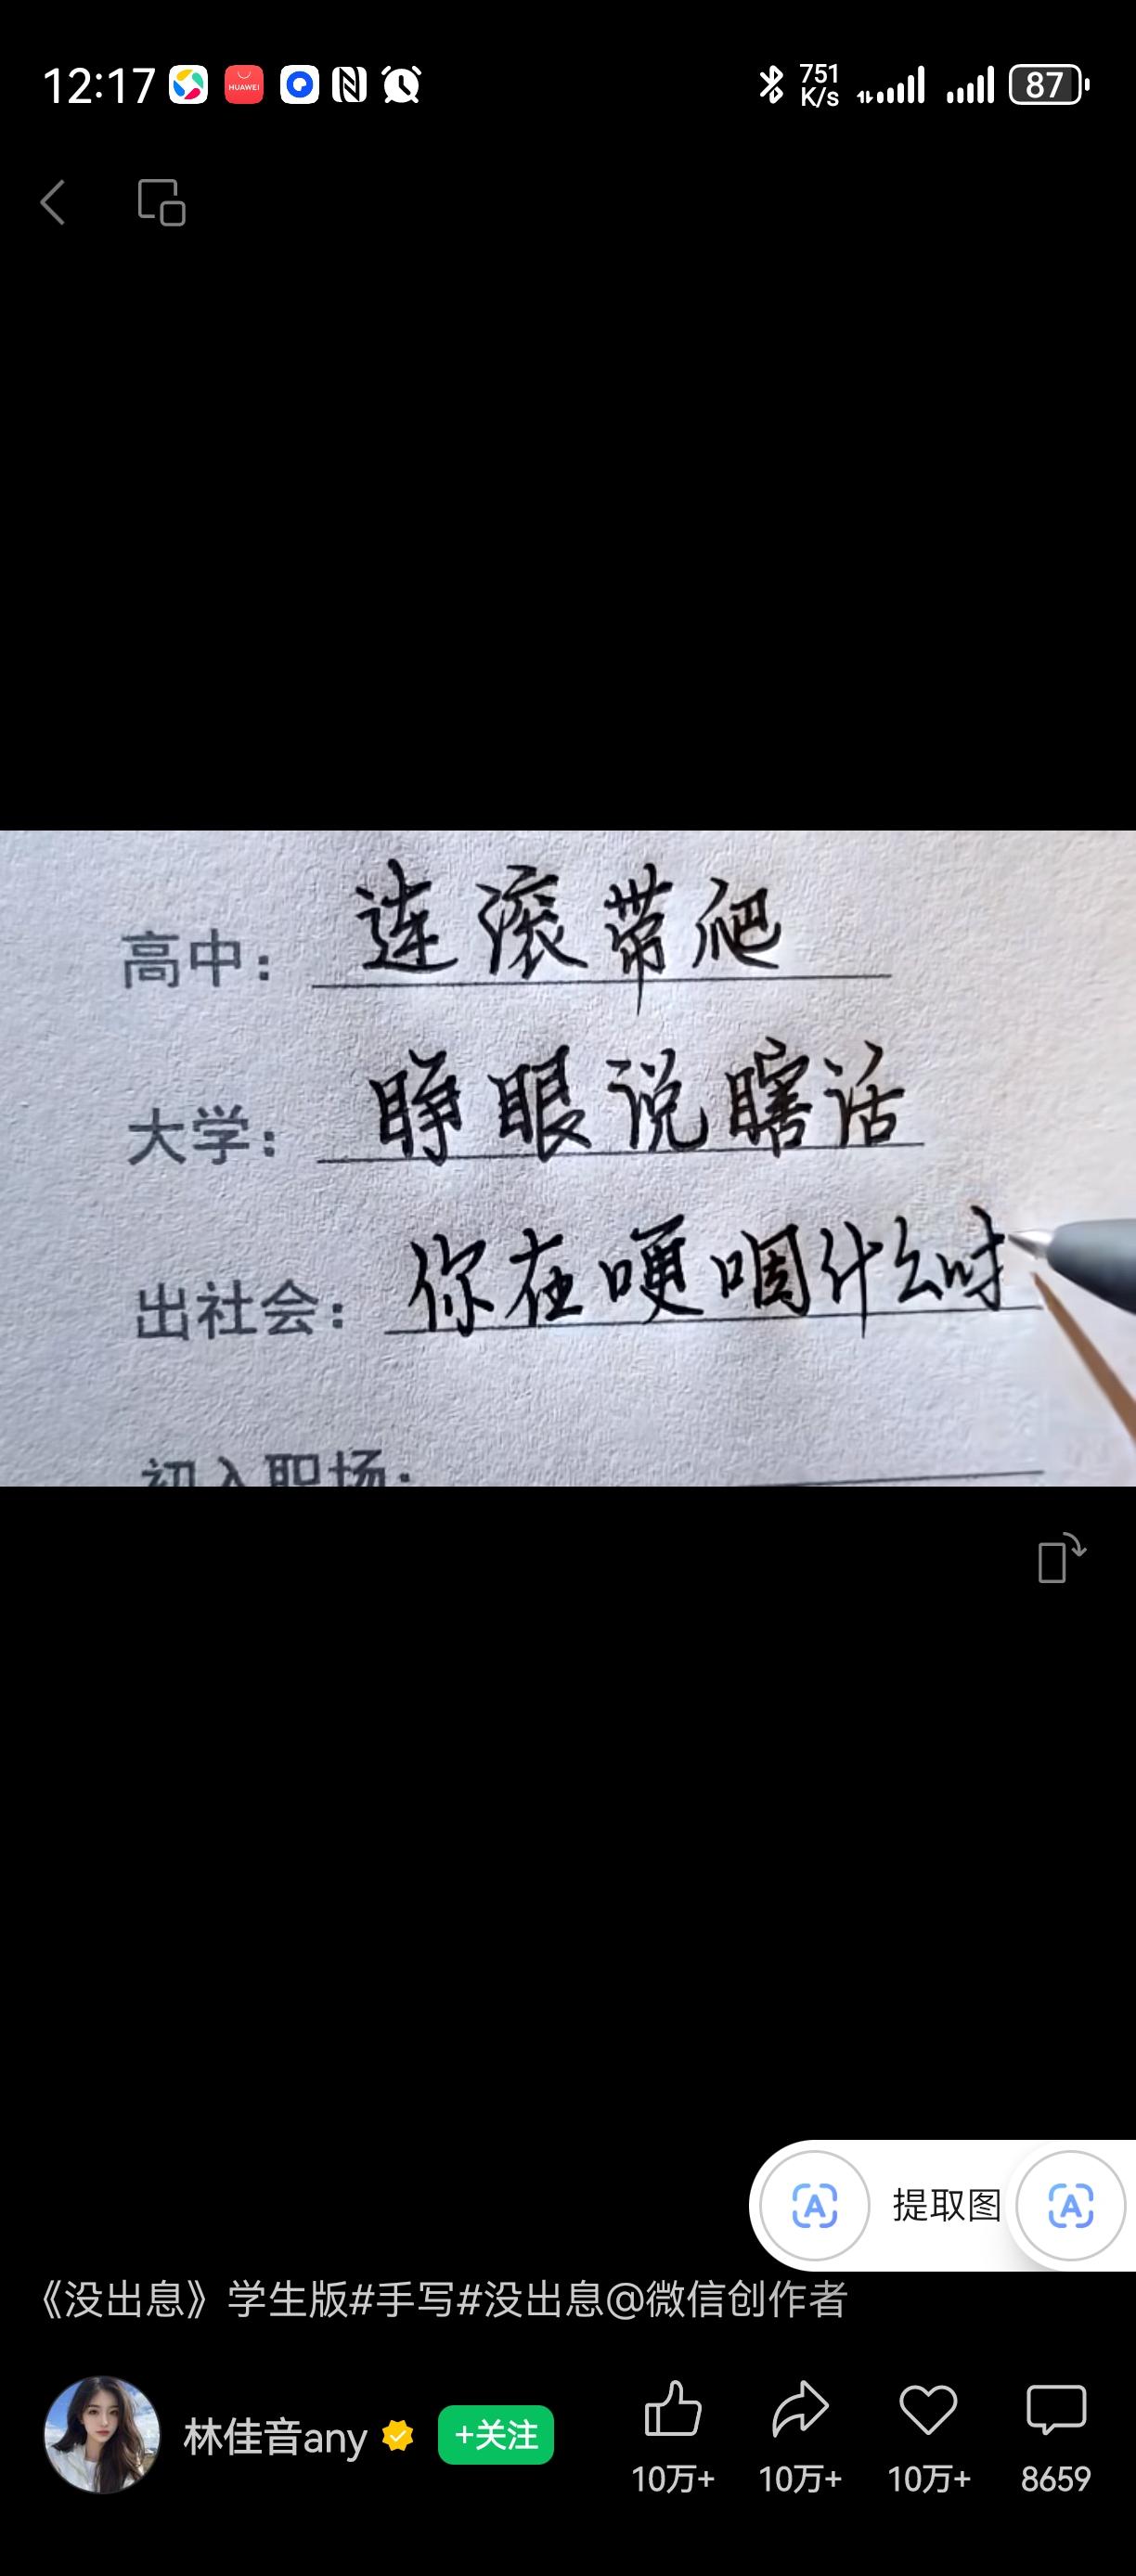 12:17
HUAWEI
751 K/s
87
高中：连滚带爬
大学：睁眼说瞎话
出社会：你在哽咽什么时
初入职场：
提取图
《没出息》学生版#手写#没出息@微信创作者
林佳音any +关注
10万+ 10万+ 10万+ 8659